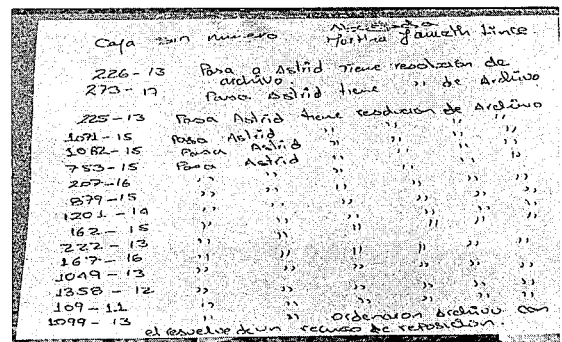 Caja sin numero Abogada
Martha Janneth Lince.
226-13 Pasa a Astrid Tiene resolucion de archivo.
273-17 Pasa Astrid tiene ,, de Archivo
225-13 Pasa Astrid tiene resolucion de Archivo
1071-15 Pasa Astrid ,, ,, ,, ,,
1082-15 Pasa Astrid ,, ,, ,, ,,
753-15 Pasa Astrid ,, ,, ,, ,,
207-16 ,, ,, ,, ,, ,, ,,
879-15 ,, ,, ,, ,, ,, ,,
1201-14 ,, ,, ,, ,, ,, ,,
162-15 ,, ,, ,, ,, ,, ,,
222-13 ,, ,, ,, ,, ,, ,,
167-16 ,, ,, ,, ,, ,, ,,
1049-13 ,, ,, ,, ,, ,, ,,
1358-12 ,, ,, ,, ,, ,, ,,
109-11 ,, ,, ,, ,, ,, ,,
1099-13 ,, ,, ordenaron Archivo con
el resuelve de un recurso de reposicion.